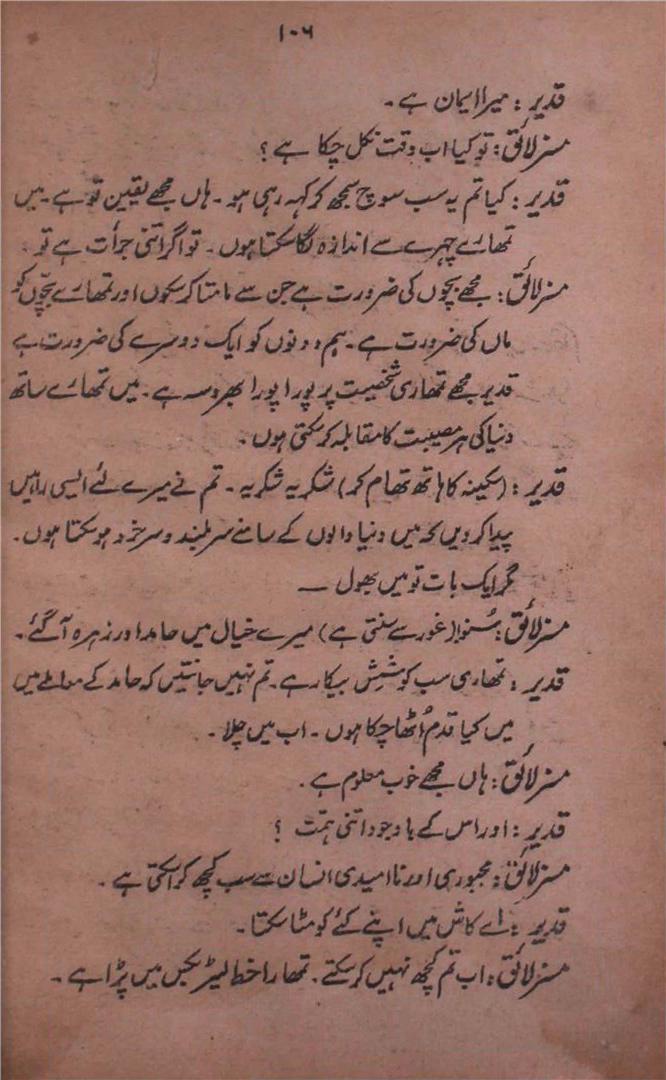 ۱۰۶
قدیر : میرا ایمان ہے ۔
مسز لائق : تو کیا اب وقت نکل چکا ہے ؟
قدیر : کیا تم یہ سب سوچ سمجھ کر کہہ رہی ہو ۔ ہاں مجھے یقین تو ہے ۔ میں
تمھارے چہرے سے اندازہ لگا سکتا ہوں ۔ تو اگر اتنی جرأت ہے تو ۔
مسز لائق : مجھے بچوں کی ضرورت ہے جن سے مامتا کر سکوں اور تمھارے بچّوں کو
ماں کی ضرورت ہے ۔ ہم دونوں کو ایک دوسرے کی ضرورت ہے
قدیر مجھے تمھاری شخصیت پر پورا پورا بھروسہ ہے ۔ میں تمھارے ساتھ
دنیا کی ہر مصیبت کا مقابلہ کر سکتی ہوں ۔
قدیر : (سکینہ کا ہاتھ تھام کر) شکریہ شکریہ ۔ تم نے میرے لئے ایسی راہیں
پیدا کر دیں کہ میں دنیا والوں کے سامنے سر بلند و سرخرو ہو سکتا ہوں ۔
مگر ایک بات تو میں بھول —
مسز لائق : سُنو (غور سے سنتی ہے) میرے خیال میں حامد اور زہرہ آ گئے ۔
قدیر : تمھاری سب کوشِش بیکار ہے ۔ تم نہیں جانتیں کہ حامد کے معاملے میں
میں کیا قدم اُٹھا چکا ہوں ۔ اب میں چلا ۔
مسز لائق : ہاں مجھے خوب معلوم ہے ۔
قدیر : اور اس کے باوجود اتنی ہمّت ؟
مسز لائق : مجبوری اور نا امیدی انسان سے سب کچھ کرا سکتی ہے ۔
قدیر : اے کاش میں اپنے کئے کو مٹا سکتا ۔
مسز لائق : اب تم کچھ نہیں کر سکتے ۔ تمھارا خط لیٹر بکس میں پڑا ہے ۔